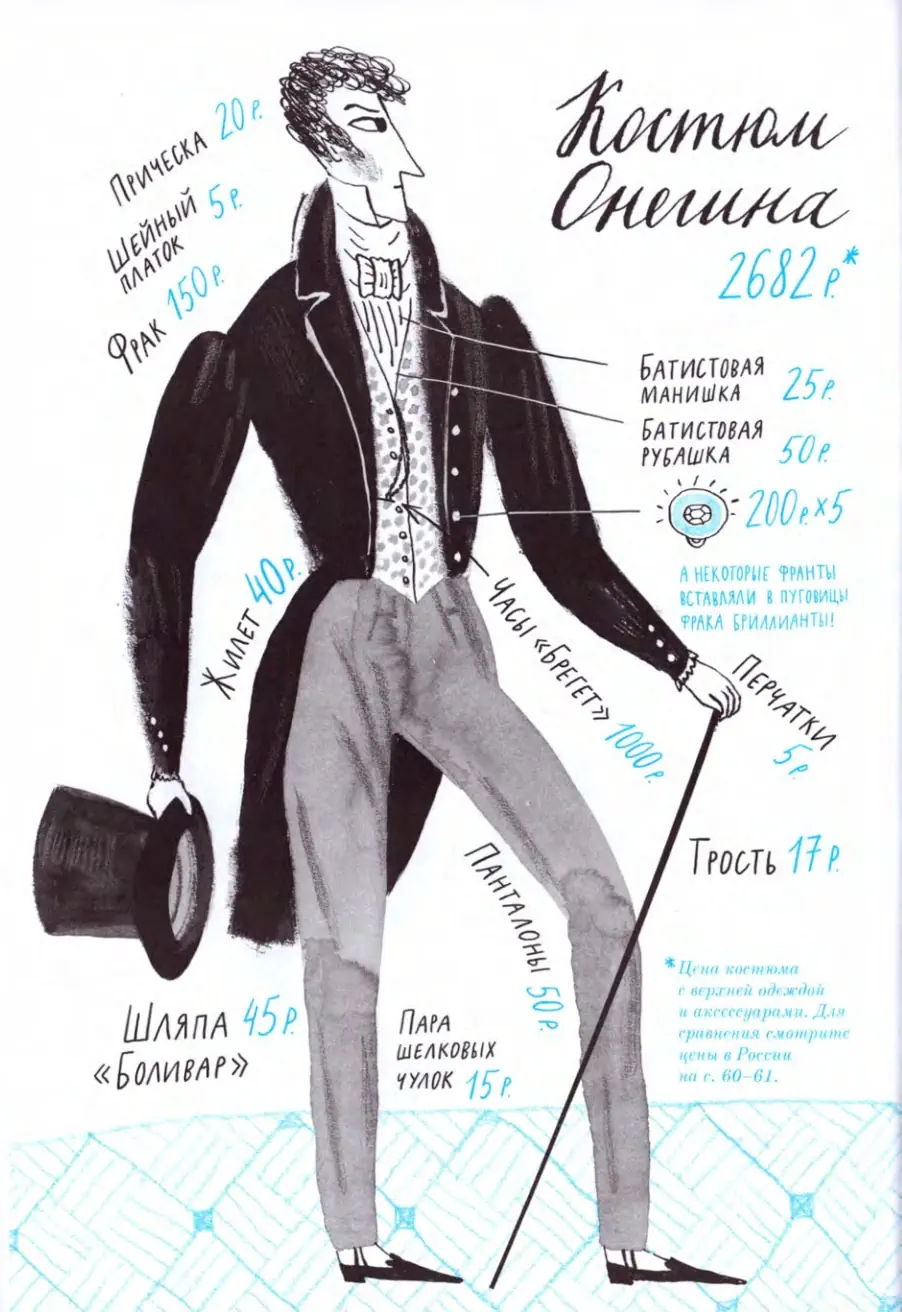 Костюм
Онегина
2682 р.*
Прическа 20 р.
Шейный
платок 5 р.
Фрак 150 р.
Батистовая
манишка 25 р.
Батистовая
рубашка 50 р.
200 р. х 5
А некоторые франты
вставляли в пуговицы
фрака бриллианты!
Жилет 40 р.
Часы «Брегет» 1000 р.
Перчатки
5 р.
Трость 17 р.
Панталоны 50 р.
Шляпа 45 р.
«Боливар»
Пара
шелковых
чулок 15 р.
* Цена костюма
с верхней одеждой
и аксессуарами. Для
сравнения смотрите
цены в России
на с. 60–61.